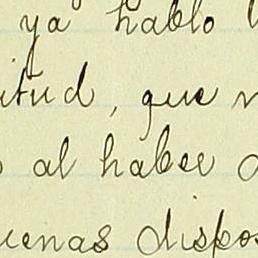 ya hablo
itud, que
al haber
uenas dispos